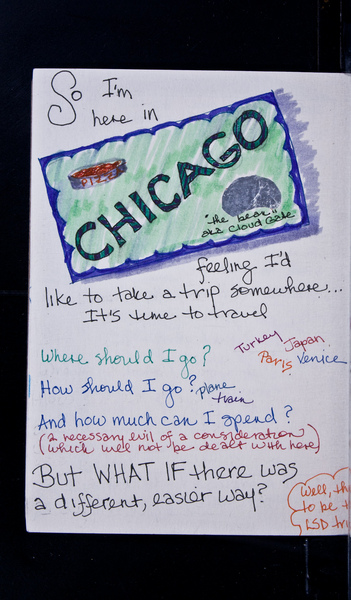 So I'm
here in
PIZZA
CHICAGO
"the bean"
aka Cloud Gate
feeling I'd
like to take a trip somewhere...
It's time to travel
Where should I go?
Turkey
Japan
Paris
Venice
How should I go?
plane
train
And how much can I spend?
(a necessary evil of a consideration
which will not be dealt with here)
But WHAT IF there was
a different, easier way?
Well, th
to be t
LSD tri